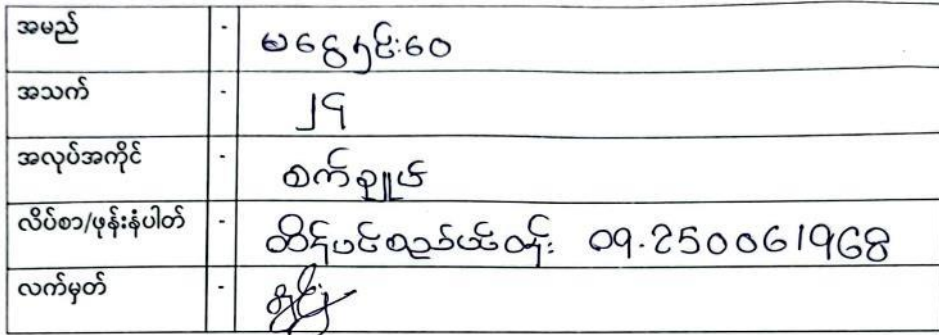 အမည် - မငွေနှင်းဝေ
အသက် - ၂၄
အလုပ်အကိုင် - စက်ချုပ်
လိပ်စာ/ဖုန်းနံပါတ် - ထိန်ပင် 09.250061968
လက်မှတ် -